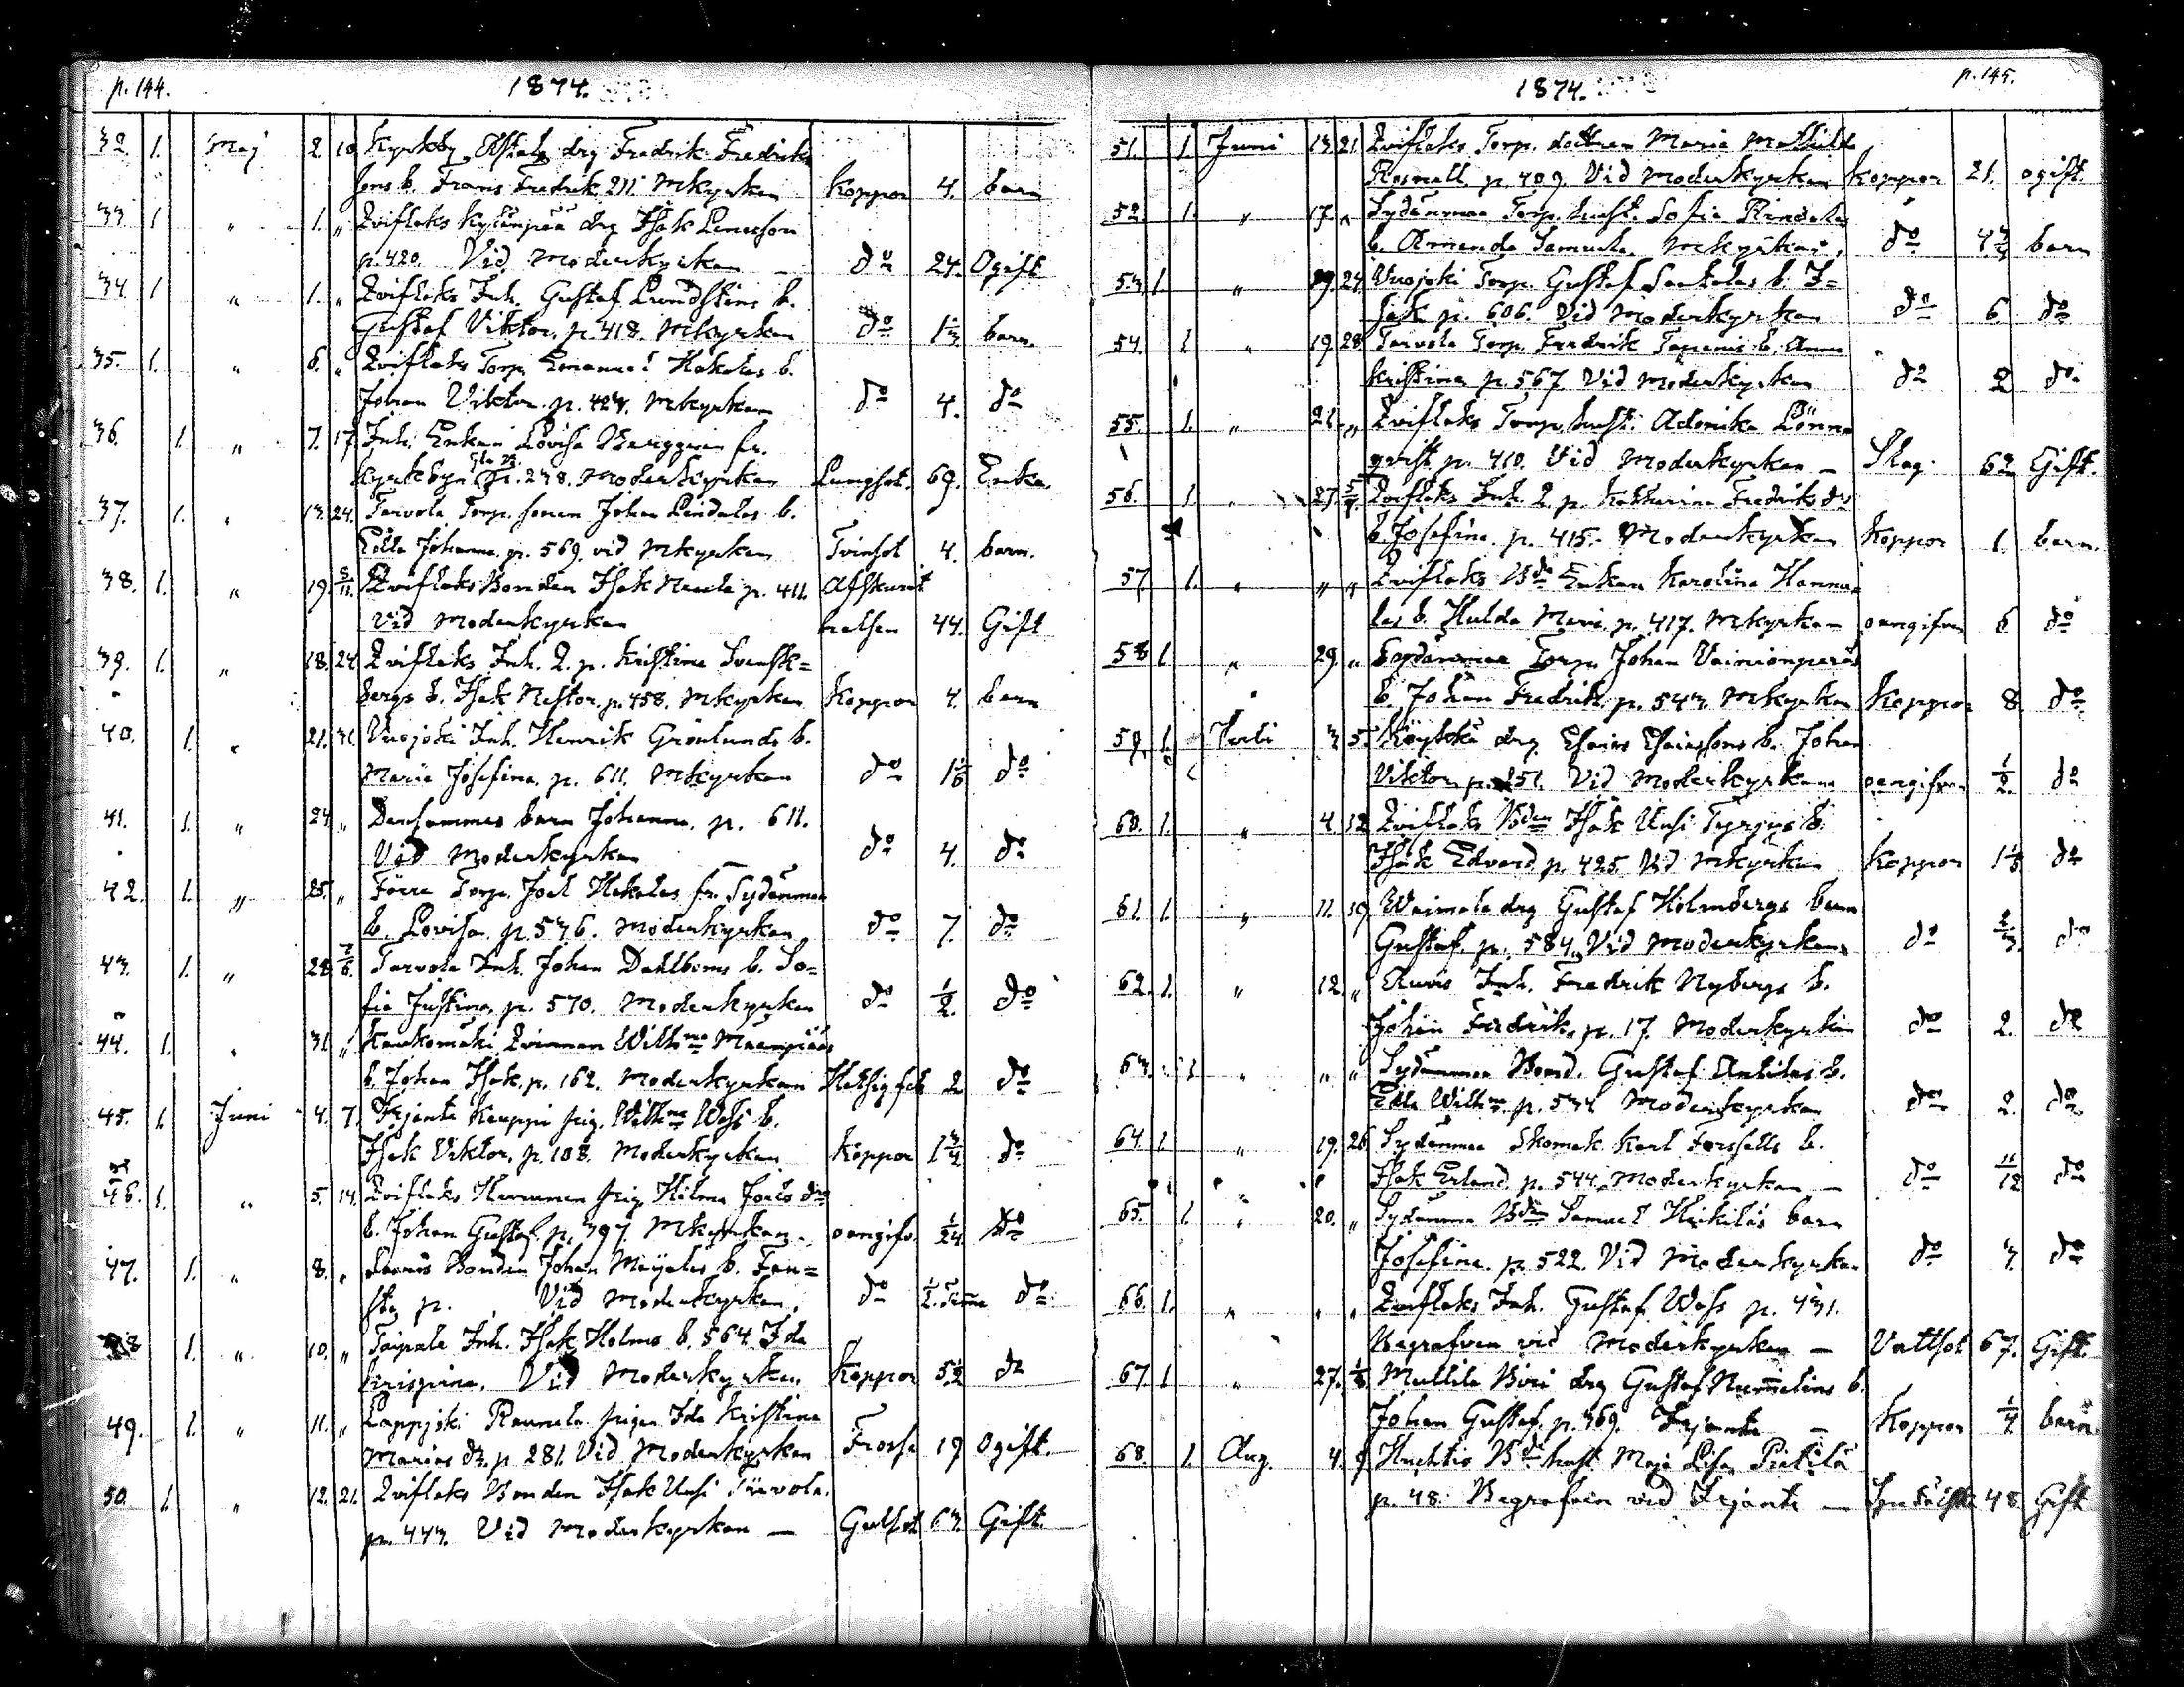 p. 144.
1874.
32. 1. Maj 2. 10. Kyrkby drg Fredrik Fredriks
sons b. Frans Fredrik 211 Mkyrkan Koppor 4. barn
33 1 " 1. " Kylänpää drg Isak
p. 420. Vid Moderkyrkan — do 24. Ogift
34. 1 " 1. " Inh. Gustaf Lundstens b.
Gustaf Viktor. p. 418. Mkyrkan do 1 1/3 barn.
35. 1. " 6. " Torp. Emanuel Hakalas b.
Johan Viktor. p. 424. Mkyrkan do 4. do
36. 1. " 7. 17. Inh. Enkan Lovisa fr.
Kyrkbyn 248. Moderkyrkan Lungsot. 69. Enka.
37. 1. " 13. 24. Tarvola Torp. sonen Johan Lindalas b.
Edla Johanna. p. 569. vid Mkyrkan Tvinsot 4. barn.
38. 1. " 19. Bonden Isak p. 411. Afskurit
Vid Moderkyrkan halsen 44. Gift
39. 1. " 18. 24. Inh. Q. p. Kristina Svensk=
bergs b. Isak Nestor. p. 458. Mkyrkan Koppor 4. barn
40. 1. " 21. 31. Vuojoki Inh. Henrik Grönlunds b.
Maria Josefina. p. 611. Mkyrkan do 1 1/6 do
41. 1. " 24. " Densammes barn Johanna. p. 611.
Vid Moderkyrkan do 4. do
42. 1. " 25. " Förre Torp. Joel Hakalas fr. Sydänmaa
b. Lovisa. p. 536. Moderkyrkan do 7. do
43. 1. " 28. 7/6. Tarvola Inh. Johan Dahlboms b. So=
fia Justina, p. 570. Moderkyrkan do 1/2. do
44. 1. " 31. " Kaukomäki Qvinnan Wilhma Määnpääs
b. Johan Isak. p. 162. Moderkyrkan 2 do
45. 1. Juni 4. 7. Irjanta Kauppi pig. Wilhma b.
Isak Viktor. p. 108. Moderkyrkan Koppor 1 3/4 do
46. 1. " 5. 14. pig. Hilma Joels dr
b. Johan Gustaf. p. 397. Mkyrkan. oangifv. 1/24. do
47. 1. " 8. " Bonden Johan b. Fan=
ny p. Vid Moderkyrkan. do do
1. " 10. " Taipale Inh. Isak Holms b. 564. Ida
Krispina. Vid Moderkyrkan Koppor 5 1/2 do
49. 1. " 11. " Lappijoki Raumela pigan Ida Kristina
dr. p. 281. Vid Moderkyrkan Frossa 19 Ogift.
50. 1. " 12. 21. Bonden Isak Uusi
p. 443. Vid Moderkyrkan — Gulsot 63. Gift.
p. 145.
1874.
51. 1. Juni 13. 21. Torp. dottren Maria Mathilda
Rosnell. p. 409. Vid Moderkyrkan Koppor 21. ogift.
52. 1. " 17. " Sydänmaa Torp. hust. Sofia
b. Amanda Samuela. Mkyrkan. do 4 3/4 barn
53. 1. " 19. 24. Vuojoki Torp. Gustaf b. I=
sak p. 606. Vid Moderkyrkan do 6 do
54. 1 " 19. 28 Tarvola Torp. Fredrik Tapanis b. Anna
Kristina p. 567. Vid Moderkyrkan do 2 do
55. 1. " 21. " Torp. hust. Adonika Lönn=
qvist p. 410. Vid Moderkyrkan — Slag. 62 Gift.
56. 1. " 27. 5/7 Inh. Q. p. Katharina Fredriks dr
b. Josefina. p. 415. Moderkyrkan Koppor 1. barn.
57 1. " " " Enkan Karolina Hannu=
las b. Hulda Maria. p. 417. Mkyrkan oangifven 6 do
58 1. " 29. " Sydänmaa Torp. Johan Vainionperäs
b. Johan Fredrik. p. 543. Mkyrkan Koppor 8. do
59. 1. Juli 3 5. Köylikä drg Esaias Esaiassons b. Johan
Viktor p. 251. Vid Moderkyrkan oangifven 1/2. do
60. 1. " 4. 12. Isak Uusi b.
Isak Edvard p. 425. Vid Mkyrkan Koppor 1 1/3 do
61. 1. " 11. 19. drg Gustaf Holmbergs barn
Gustaf. p. 584. Vid Moderkyrkan do 2/3. do
62. 1. " 12. " Auvis Inh. Fredrik Nybergs b.
Johan Fredrik. p. 17. Moderkyrkan do 2. do
63. 1. " " " Sydänmaa Bond. Gustaf Anttilas b.
Edla Wilhma. p. Moderkyrkan do 2. do
64. 1. " 19. 26. Sydänmaa Skomak. Karl Forssells b.
Isak Erland. p. 544. Moderkyrkan — do 11/12 do
65. 1. " 20. " Sydänmaa Samuel Heikiläs barn
Josefina. p. 522. Vid Moderkyrkan do 3. do
66. 1. " " " Inh. Gustaf p. 431.
Begrafven vid Moderkyrkan — Vattsot 67. Gift.
67 1 " 27. Mullila drg Gustaf Nummelins b.
Johan Gustaf. p. 369. Irjanta — Koppor 1/4 barn
68. 1. Aug. 4. 9. Huhtis hust. Maja Lisa Pietilä
p. 48. Begrafven vid Irjanta — 48. Gift